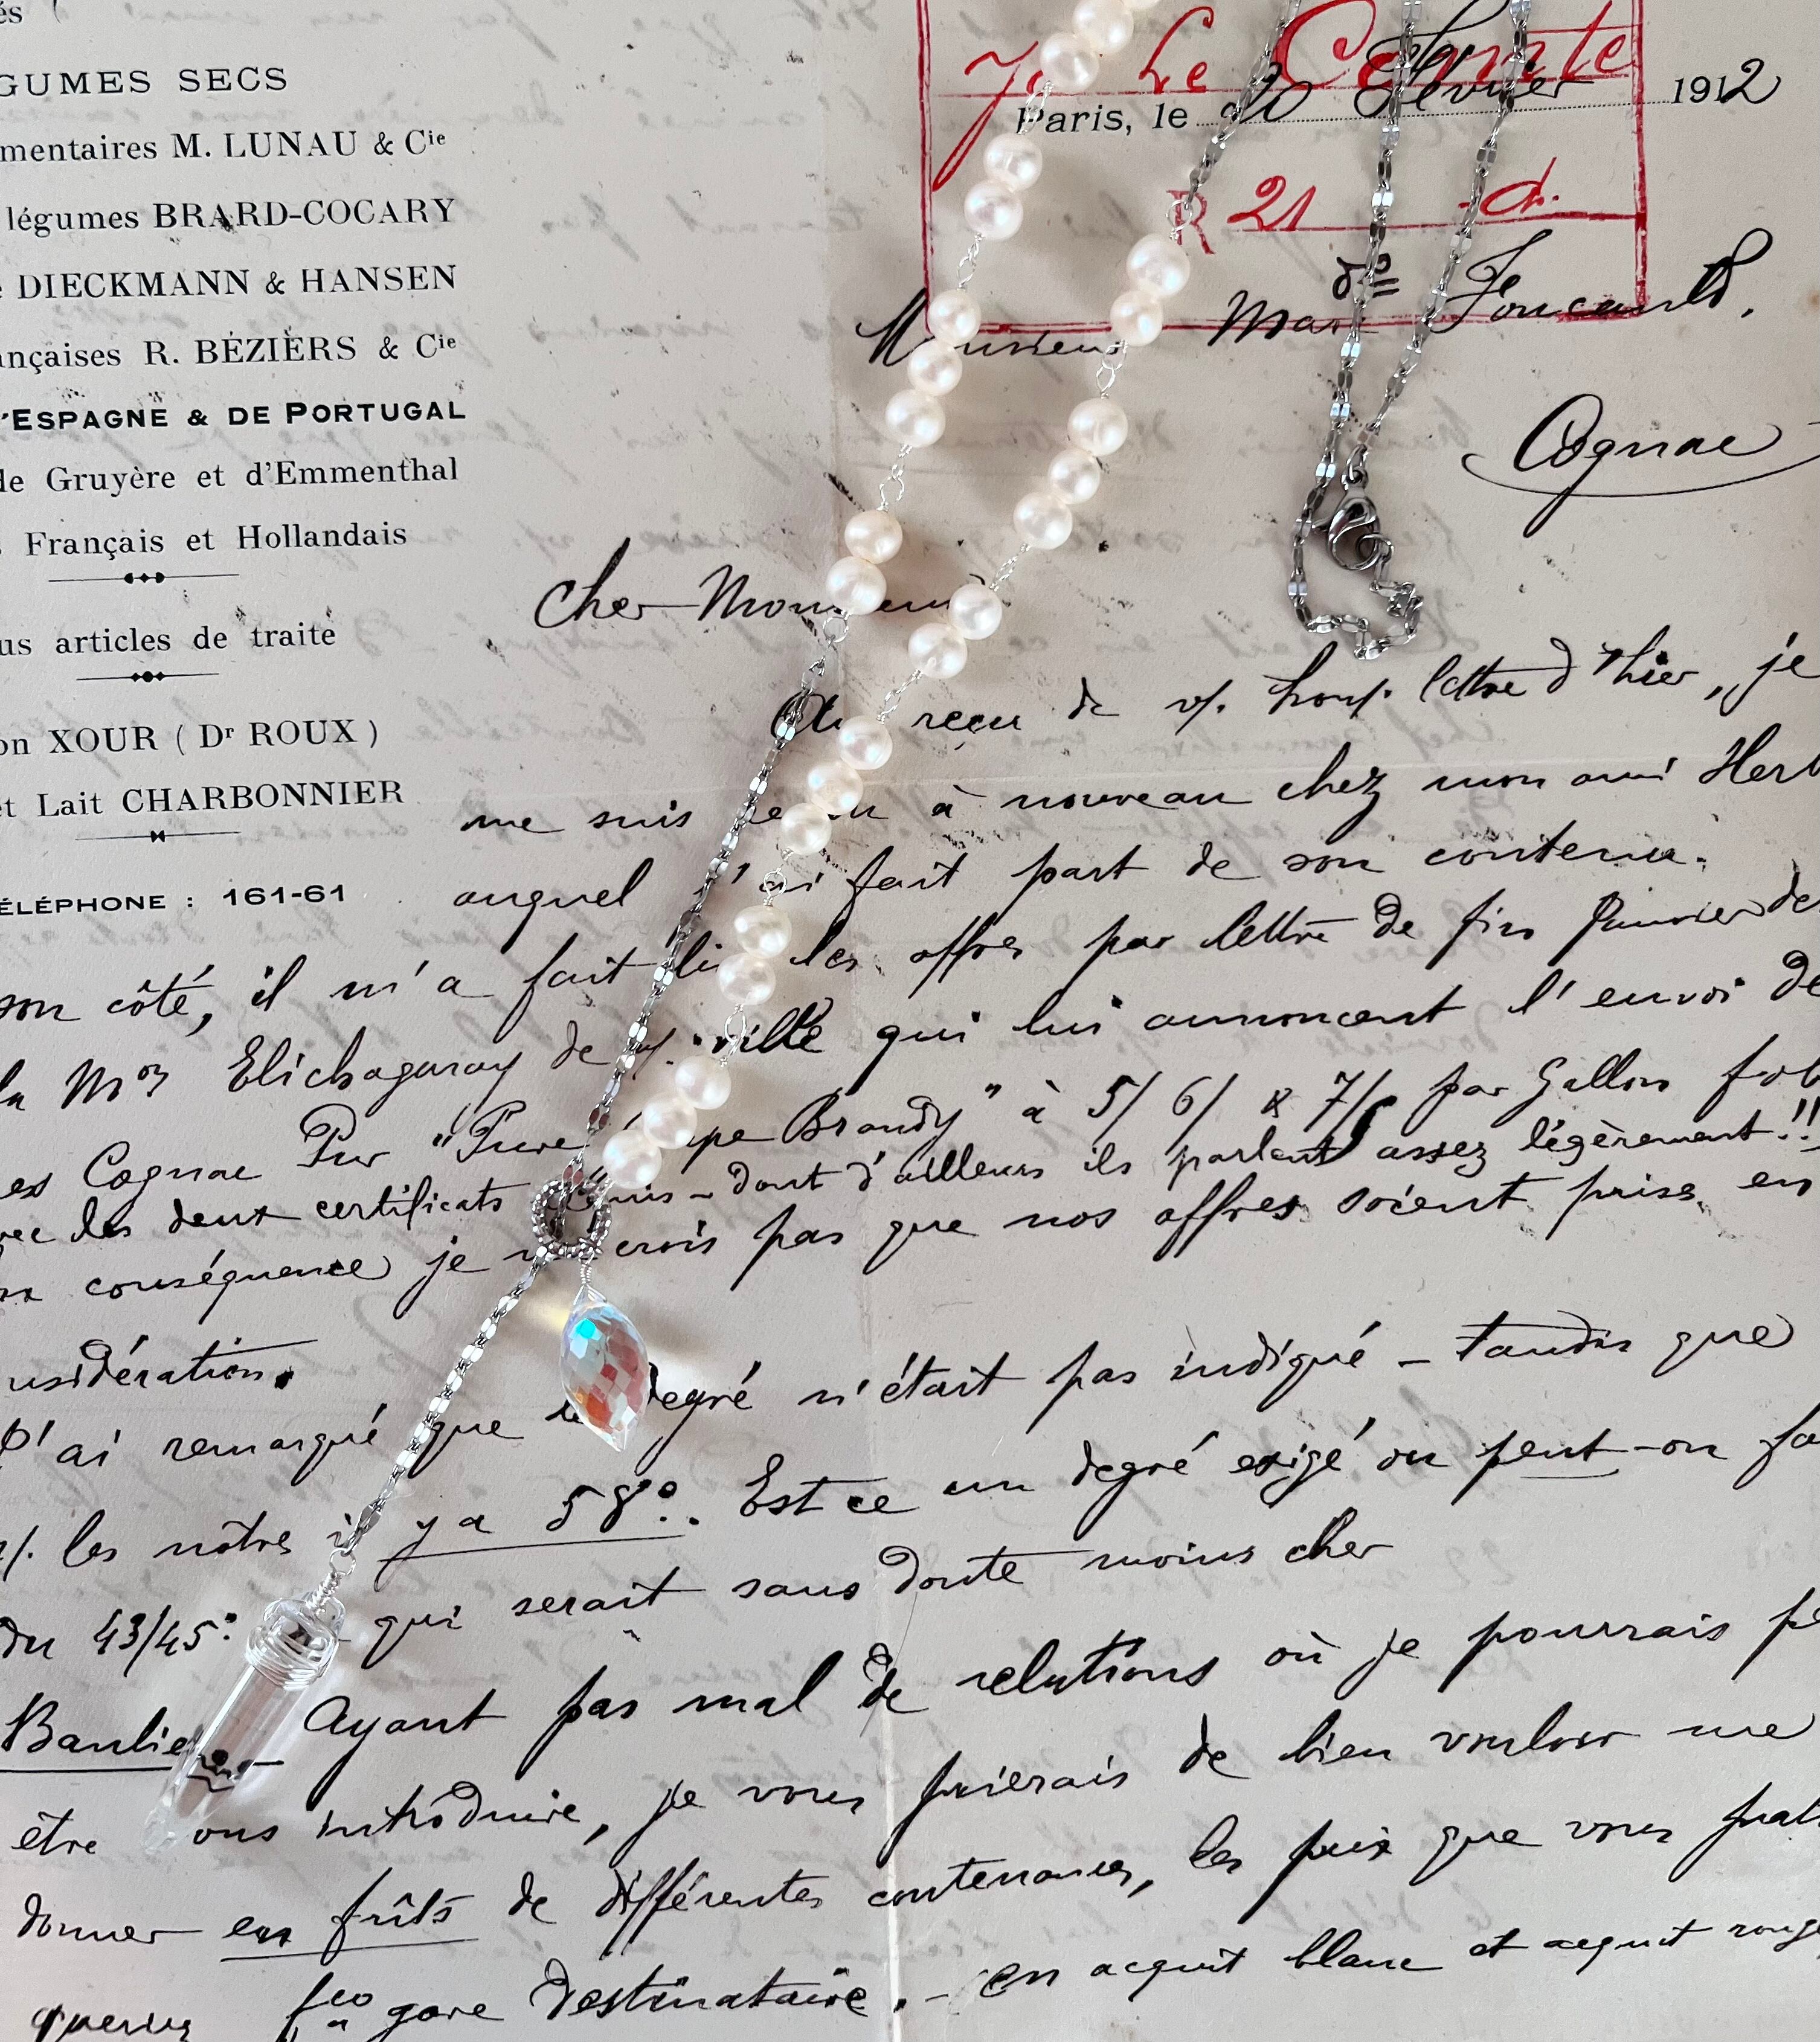 és
GUMES SECS
mentaires M. LUNAU & Cie
légumes BRARD-COCARY
DIECKMANN & HANSEN
nçaises R. BÉZIERS & Cie
'ESPAGNE & DE PORTUGAL
de Gruyère et d'Emmenthal
s Français et Hollandais
us articles de traite
on XOUR ( Dr ROUX )
et Lait CHARBONNIER
ÉLÉPHONE : 161-61
Le Comte
Paris, le 20 février 1912
R 21 d.
Monsieur Foucauld,
Cognac
Cher Monsieur
reçu de v/. hon/. lettre d'hier, je
me suis à nouveau chez mon ami Herb
auquel j'ai fait part de son contenu.
son côté, il m'a fait les offres par lettre de fin Janvier de
la Mon Elichagaray de v/. ville qui lui annoncent l'envoi de
es Cognac Pur "Pure Brandy" à 5/ 6/ & 7/ par Gallon fob
vec les deux certificats dont d'ailleurs ils parlent assez légèrement!!
conséquence je crois pas que nos offres soient prises en
nsidération.
J'ai remarqué que le degré n'était pas indiqué – tandis que
/. les nôtres il y a 58°. Est ce un degré exigé ou peut-on fa
du 43/45° qui serait sans doute moins cher
Ayant pas mal de relations où je pourrais pe
être vous introduire, je vous prierais de bien vouloir me
donner en fûts de différentes contenances, les prix que vous
fco gare destinataire. – en acquit blanc et acquit rouge